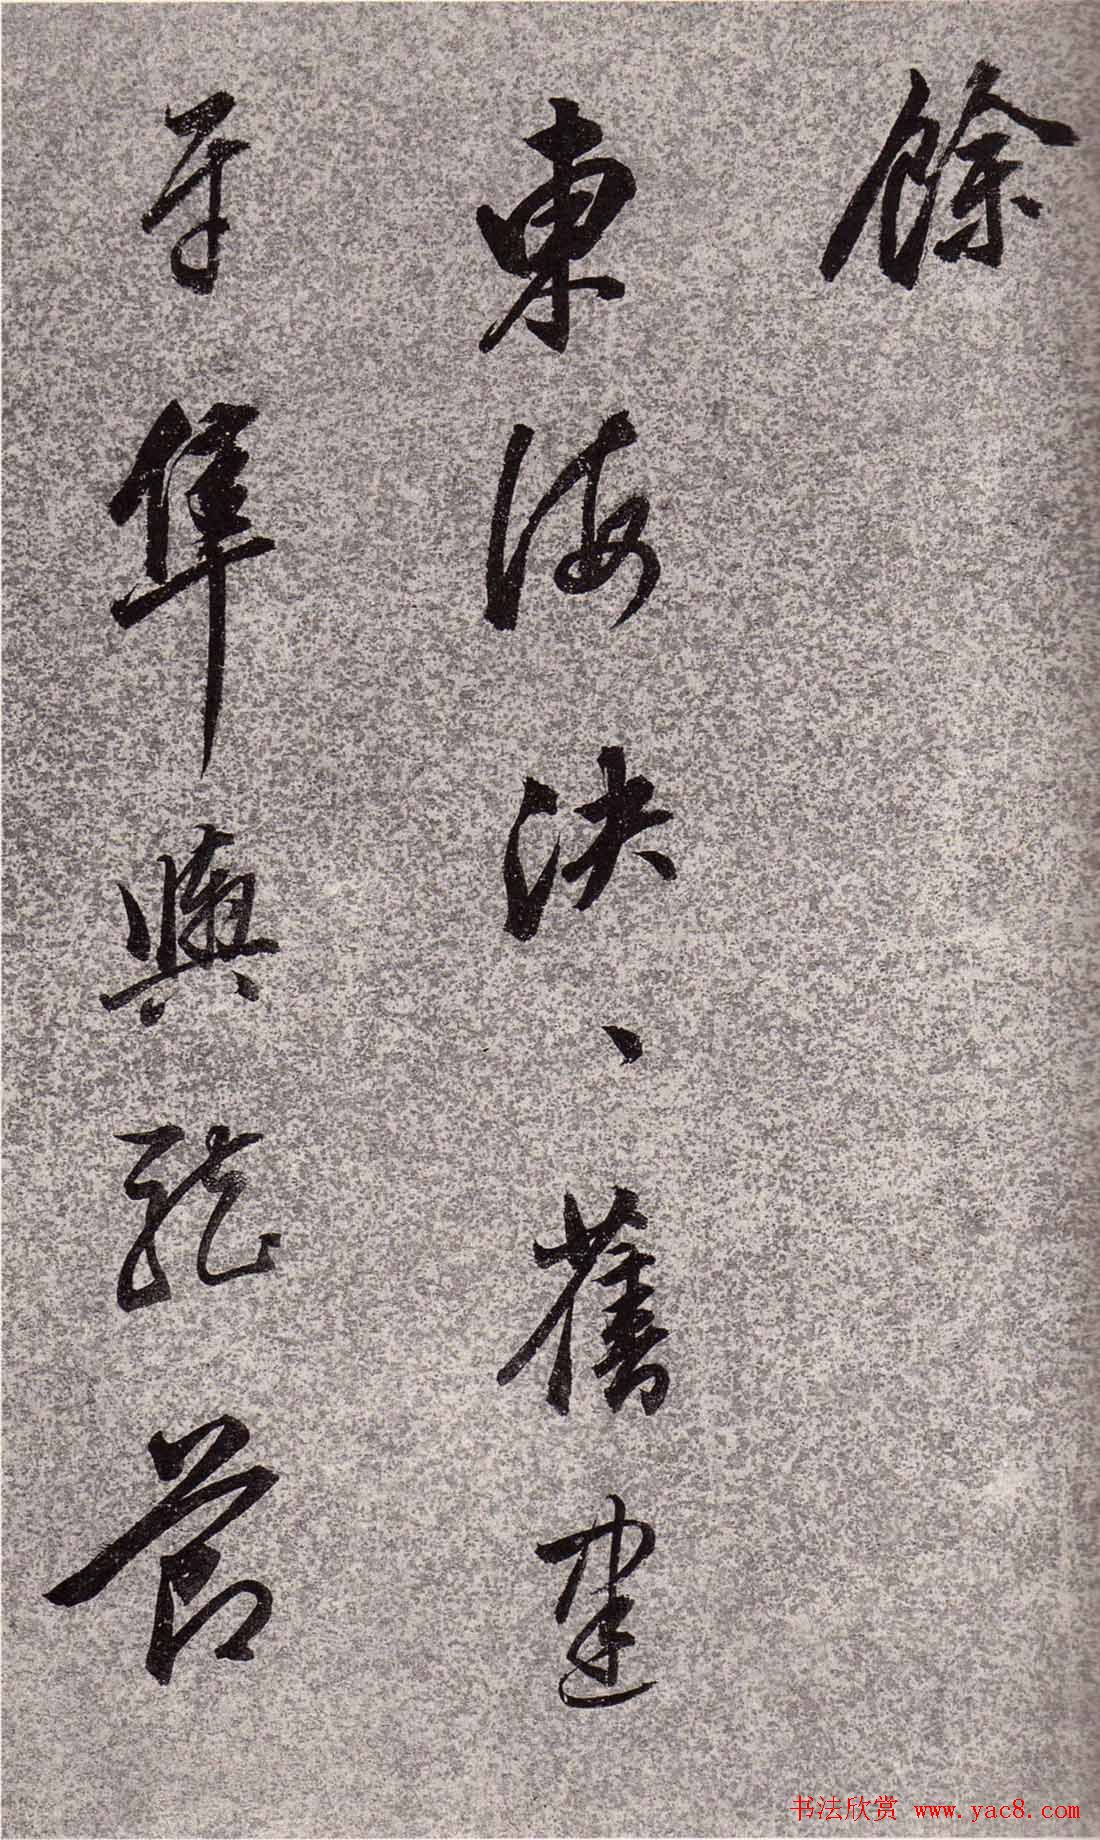 餘
東海泱、舊建
牙隼與龍節
书法欣赏 www.yac8.com